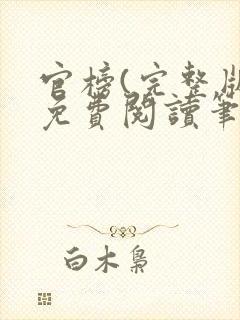 官榜(完整版
免費閱讀筆
白木梟